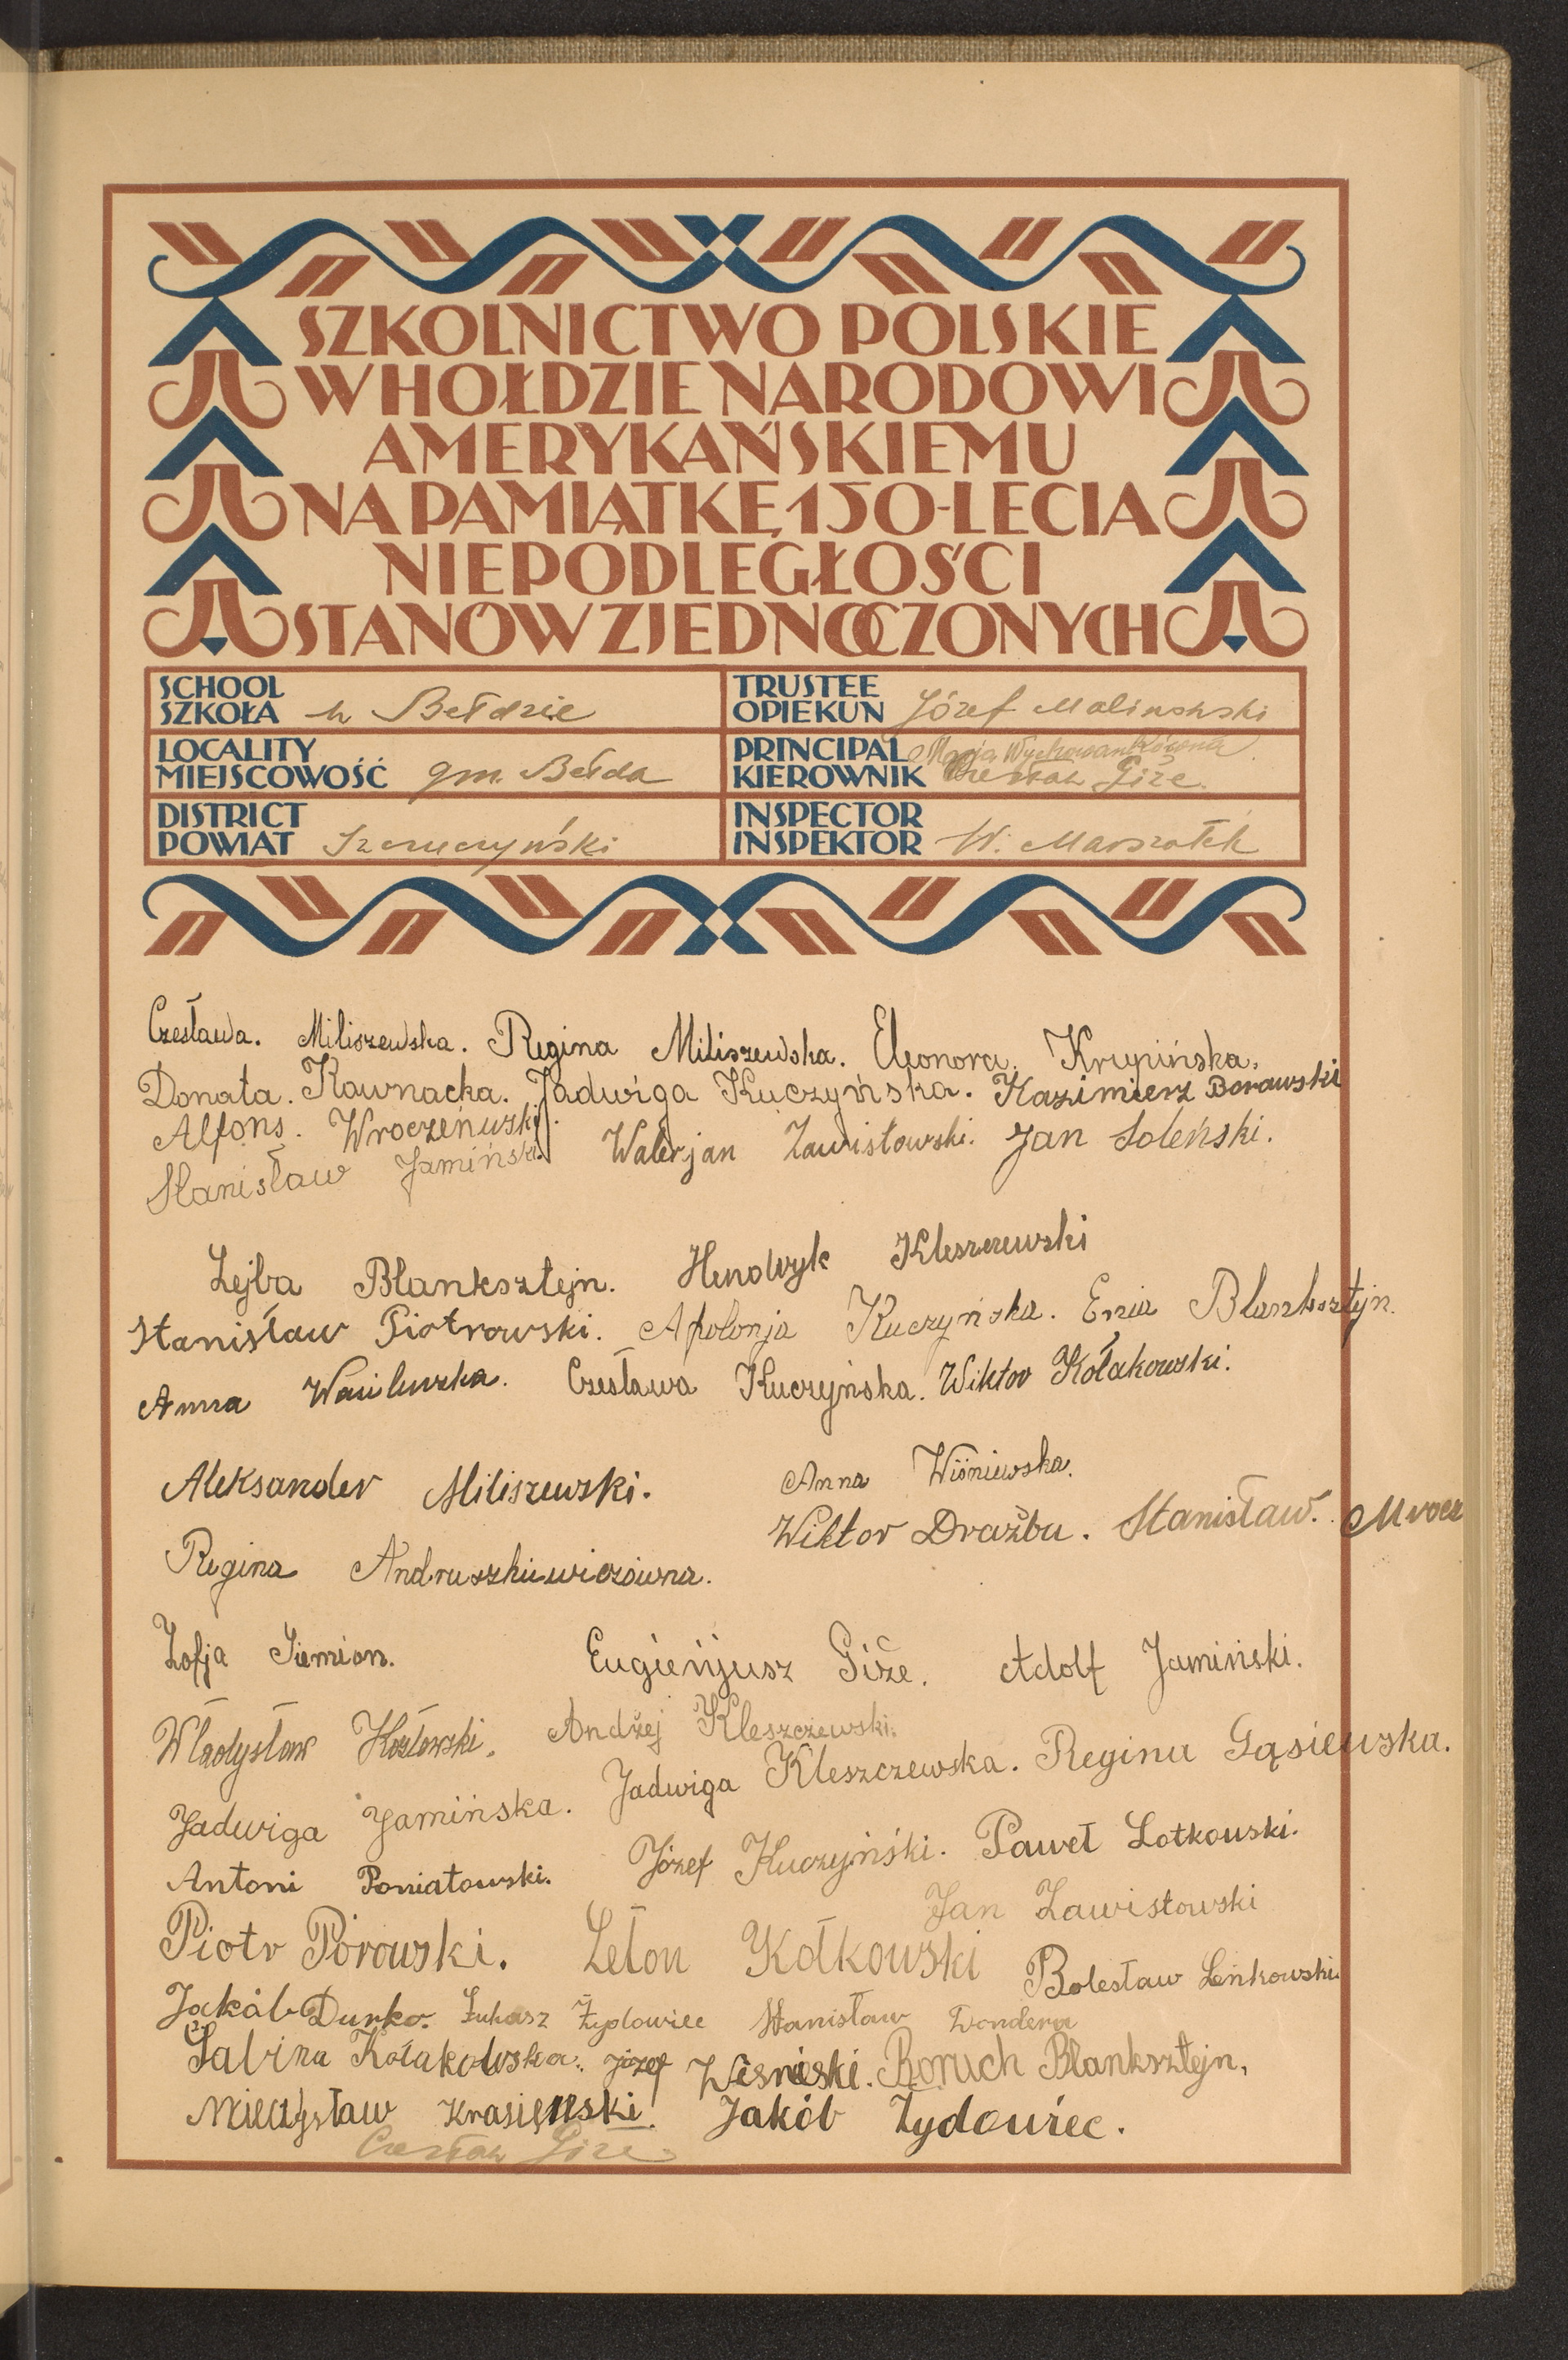 SZKOLNICTWO POLSKIE
W HOŁDZIE NARODOWI
AMERYKAŃSKIEMU
NA PAMIĄTKĘ 150-LECIA
NIEPODLEGŁOŚCI
STANÓW ZJEDNOCZONYCH
SCHOOL
SZKOŁA w Bełdzie
TRUSTEE
OPIEKUN Józef Malinowski
LOCALITY
MIEJSCOWOŚĆ gm. Bełda
PRINCIPAL Marja Wychowankówna
KIEROWNIK Czesław Giże.
DISTRICT
POWIAT Szczuczyński
INSPECTOR
INSPEKTOR W. Marszałek
Czesława. Miliszewska. Regina Miliszewska. Eleonora. Krupińska.
Donata. Rawnacka. Jadwiga Kuczyńska. Kazimierz Borawski
Alfons. Wroczeńwski.
Stanisław Jamiński. Walerjan Zawistowski. Jan Soleński.
Lejba Blanksztejn. Hendryk Kleszczewski
Stanisław Piotrowski. Apolonja Kuczyńska. Enia Blanksztejn.
Anna Wasilewska. Czesława Kuczyńska. Wiktor Kołakowski.
Aleksander Miliszewski. Anna Wiśniewska.
Wiktor Drażba. Stanisław. Mrocz
Regina Andruszkiewiczówna.
Zofja Siemion. Eugieńjusz Giże. Adolf Jamiński.
Władysław Kozłowski. Andżej Kleszczewski.
Jadwiga Jamińska. Jadwiga Kleszczewska. Regina Gąsiewska.
Antoni Poniatowski. Józef Kuczyński. Paweł Lotkowski.
Jan Zawistowski
Piotr Porowski. Leton Kotkowski Bolesław Leńkowski
Jakób Durko. Łukasz Żydowiec Stanisław Wondera
Sabina Kołakowska. Józef Wisnieski. Boruch Blanksztejn,
Mieczysław Krasięnski. Jakób Zydowiec.
Czesław Giże